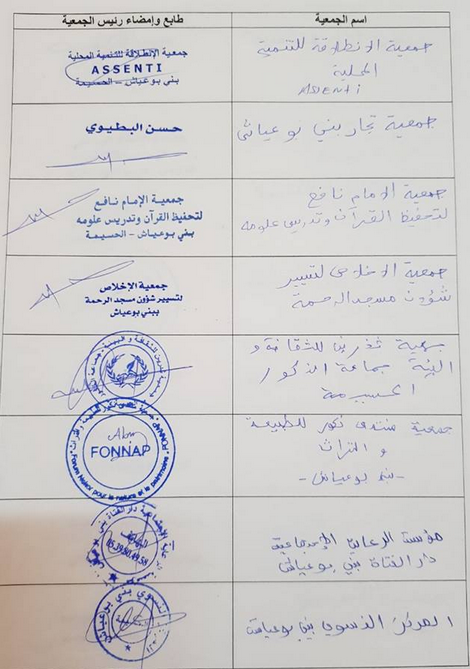 اسم الجمعية
طابع وإمضاء رئيس الجمعية
جمعية الانطلاقة للتنمية
المحلية
ASSENTI
جمعية الانطلاقة للتنمية المحلية
ASSENTI
بني بوعياش – الحسيمة
جمعية تجار بني بوعياش
حسن البطيوي
جمعية الامام نافع
لتحفيظ القرآن وتدريس علومه
جمعية الإمام نافع
لتحفيظ القرآن وتدريس علومه
بني بوعياش – الحسيمة
جمعية الاخلاص لتسيير
شؤون مسجد الرحمة
جمعية الإخلاص
لتسيير شؤون مسجد الرحمة
ببني بوعياش
للثقافة و
البيئة بجماعة النكور
الحسيمة
جمعية منتدى نكور للطبيعة
و التراث
- بني بوعياش -
FONNAP
Forum Nekor pour la nature et le patrimoine
مؤسسة الرعاية الاجتماعية
دار الفتاة بني بوعياش
05.39.80.49.58
المركز النسوي بني بوعياش
النسوي بني بوعياش